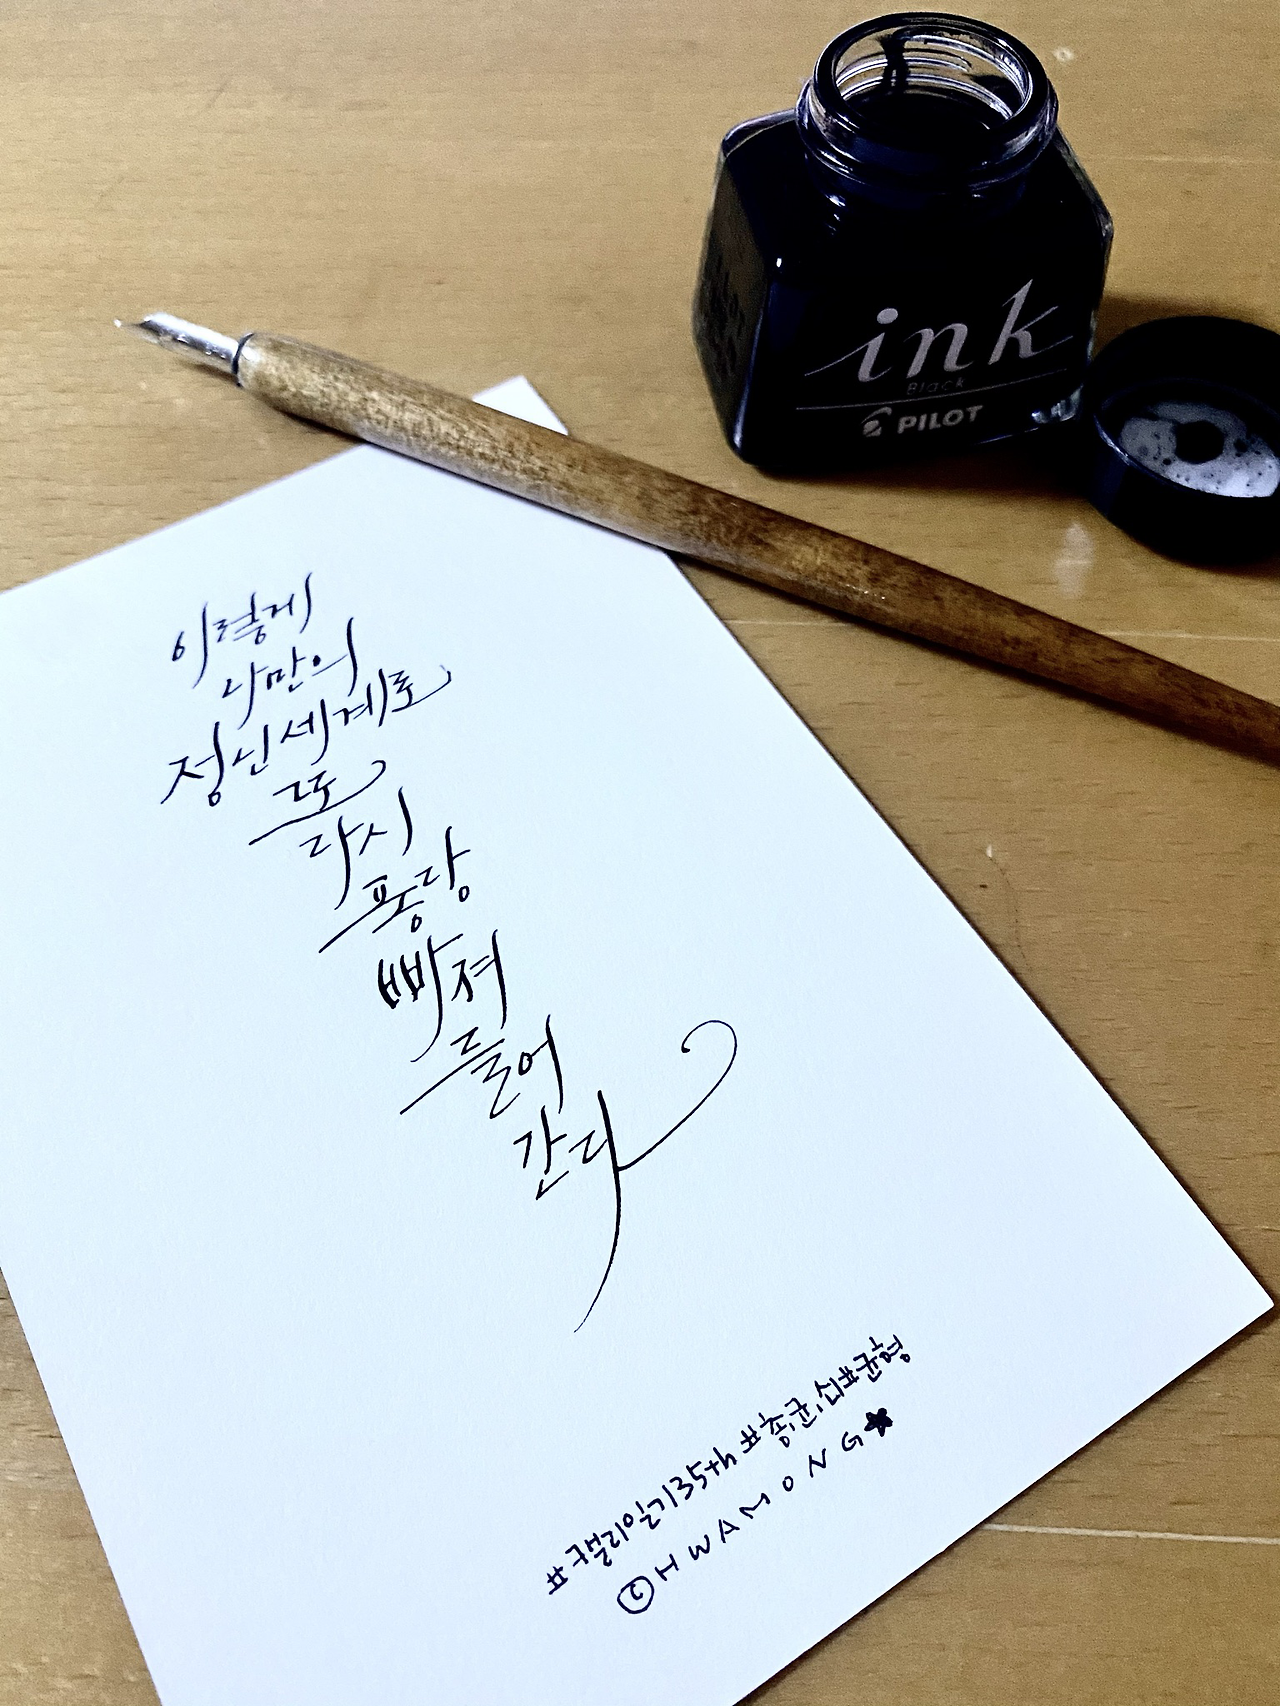 ink
Black
PILOT
이렇게
나만의
정신세계로
또
다시
퐁당
빠져
들어
간다
#캘리일기35th #총,균,쇠#균형
©HWAMONG★